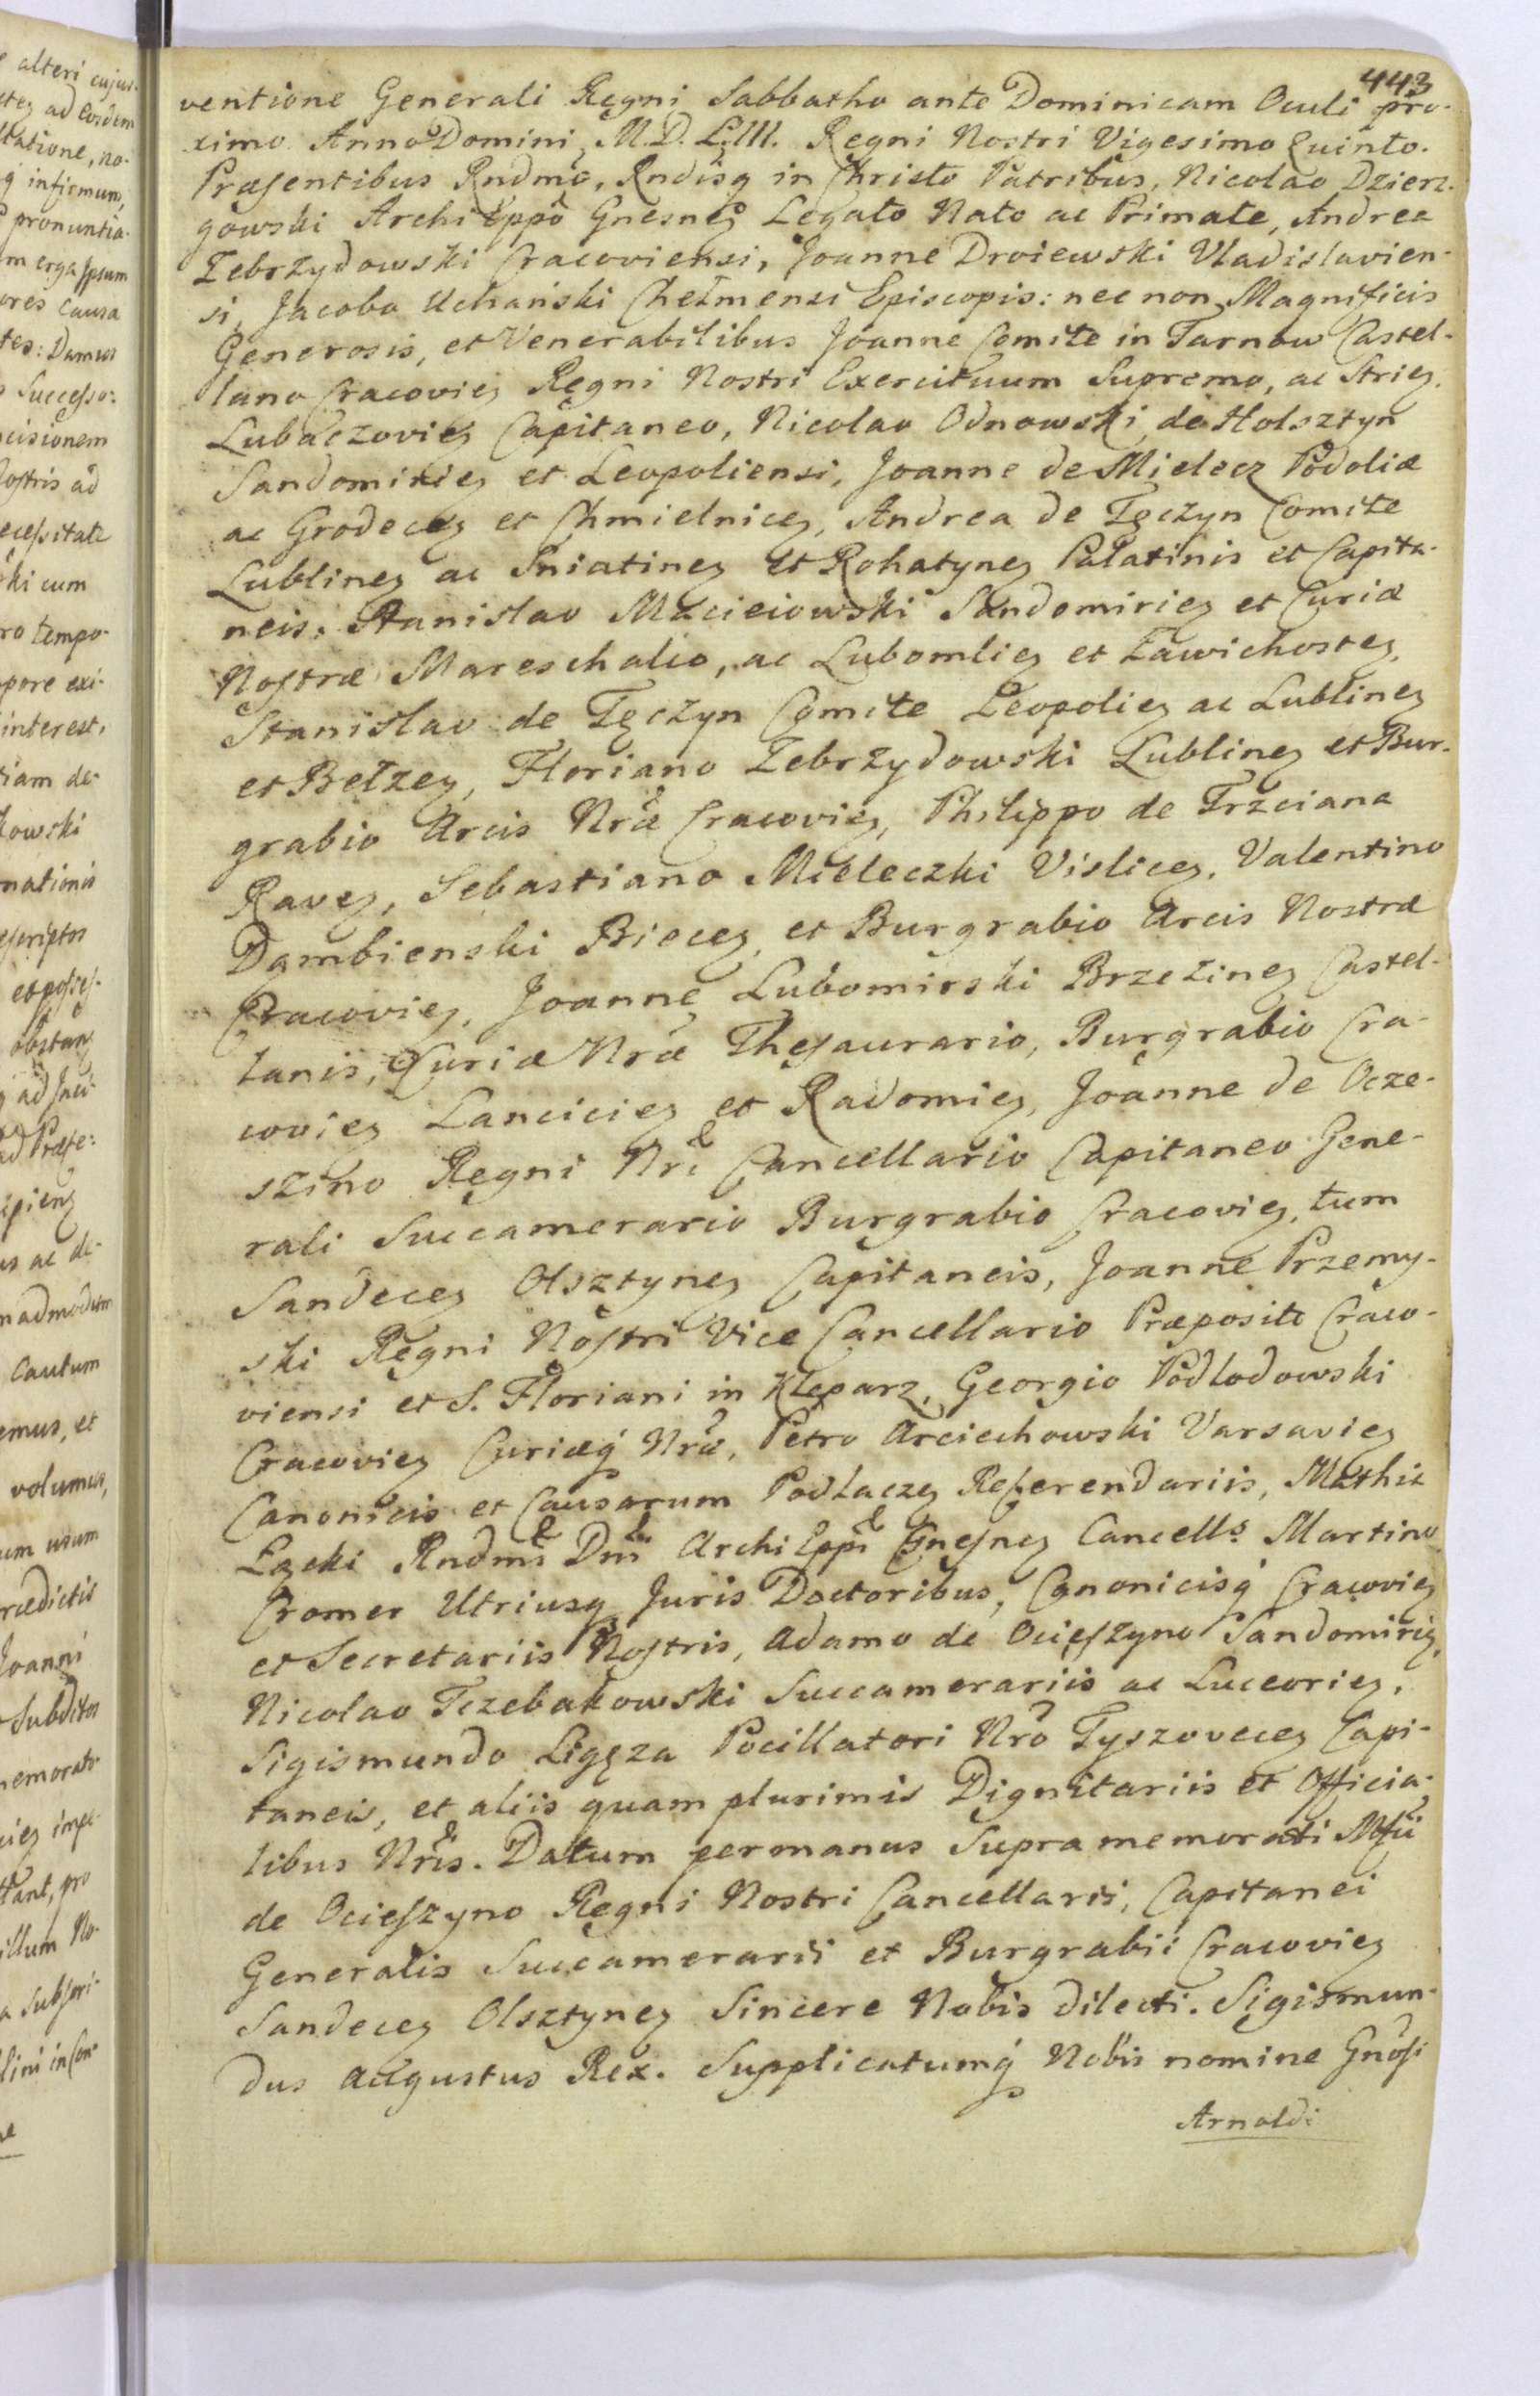 443
ventione Generali Regni Sabbatho ante Dominicam Oculi pro-
ximo Anno Domini M.D.L.III. Regni Nostri Vigesimo Quinto.
Præsentibus Rndmo, Rndisq in Christo Patribus, Nicolao Dzierz-
gowski Archi Eppo Gnesneȝ Legato Nato ac Primate, Andrea
Zebrzydowski Cracoviensi, Joanne Droiewski Vladislavien-
si, Jacobo Uchański Chełmensi Episcopis: nec non Magnificis
Generosis, et Venerabilibus Joanne Comite in Tarnow Castel-
lano Cracovieȝ Regni Nostri Exercituum Supremo, ac Strieȝ,
Lubaczovieȝ Capitaneo, Nicolao Odnowski de Holsztyn
Sandomirieȝ et Leopoliensi, Joanne de Mielecz Podoliæ
ac Grodeceȝ et Chmielniceȝ, Andrea de Tęczyn Comite
Lublineȝ ac Sniatineȝ et Rohatyneȝ Palatinis et Capita-
neis, Stanislao Macieiowski Sandomirieȝ et Curiæ
Nostræ Mareschalco, ac Lubomlieȝ et Zawichosteȝ,
Stanislao de Tęczyn Comite Leopolieȝ ac Lublineȝ
et Bełzeȝ, Floriano Zebrzydowski Lublineȝ et Bur-
grabio Arcis Nræ Cracovieȝ, Philippo de Trzciana
Raveȝ, Sebastiano Mieleczki Visliceȝ, Valentino
Dąmbienski Bieceȝ, et Burgrabio Arcis Nostræ
Cracovieȝ, Joanne Lubomirski Brzezineȝ Castel-
lanis, Curiæ Nræ Thesaurario, Burgrabio Cra-
covieȝ Lancicieȝ et Radomieȝ, Joanne de Ocze-
szino Regni Nri Cancellario Capitaneo Gene-
rali Succamerario Burgrabio Cracovieȝ, tum
Sandeceȝ Olsztyneȝ Capitaneis, Joanne Przemy-
ski Regni Nostri Vice Cancellario Præposito Craco-
viensi et S. Floriani in Kleparz, Georgio Podlodowski
Cracovieȝ Curiæq Nræ, Petro Arciechowski Varsavieȝ
Canonicis et Causarum Podlaczeȝ Referendariis, Mathia
Łącki Rndmi Dni Archi Eppi Gnesneȝ Cancells Martino
Cromer Utriusq Juris Doctoribus, Canonicisq Cracovieȝ
et Secretariis Nostris, Adamo de Ocieszyno Sandomirieȝ,
Nicolao Tczebakowski Succamerariis ac Luceorieȝ,
Sigismundo Ligęza Pocillatori Nro Tyszoveceȝ Capi-
taneis, et aliis quam plurimis Dignitariis et Officia-
libus Nris. Datum per manus Supra memorati Mfci
de Ocieszyno Regni Nostri Cancellarii, Capitanei
Generalis Succamerarii et Burgrabii Cracovieȝ
Sandeceȝ Olsztyneȝ Sincere Nobis dilecti. Sigismun-
dus Augustus Rex. Supplicatumq Nobis nomine Gnosi
Arnoldi